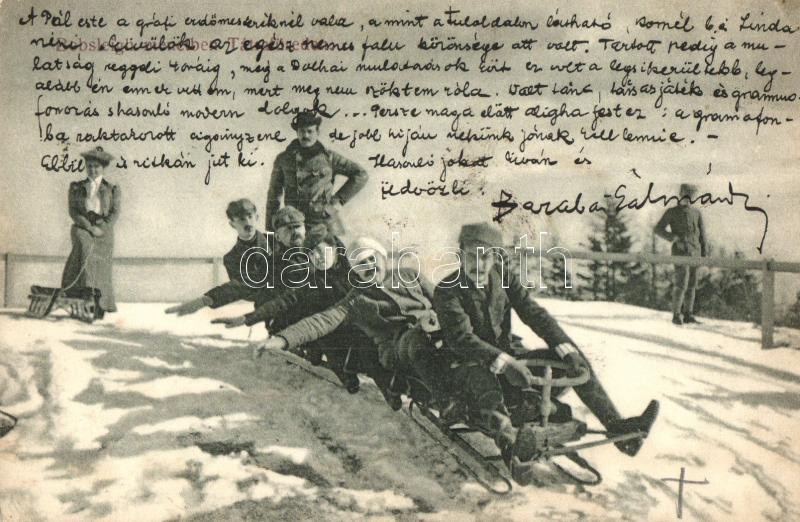 A Pál este a grófi erdőmesteréknél vala, a mint a tuloldalon látható, Kornél b. és Linda
néni az egész nemes falu közönsége ott volt. Tartott pedig a mu-
latság reggeli óráig, még a Dolhai mulatságok közt ez volt a legsikerültebb, leg-
alább én ennek vettem, mert meg nem szöktem róla. Volt tánc, társasjáték és grammo-
fonozás s hasonló modern dolgok... Persze maga előtt aligha fest ez: a gramafon-
ba raktározott cigányzene, de jobb híján nekünk jónak kell lennie. -
Ebből is ritkán jut ki. Hasonló jókat kíván és
üdvözli:
Barabás Kálmán
Tátrafüred
darabanth